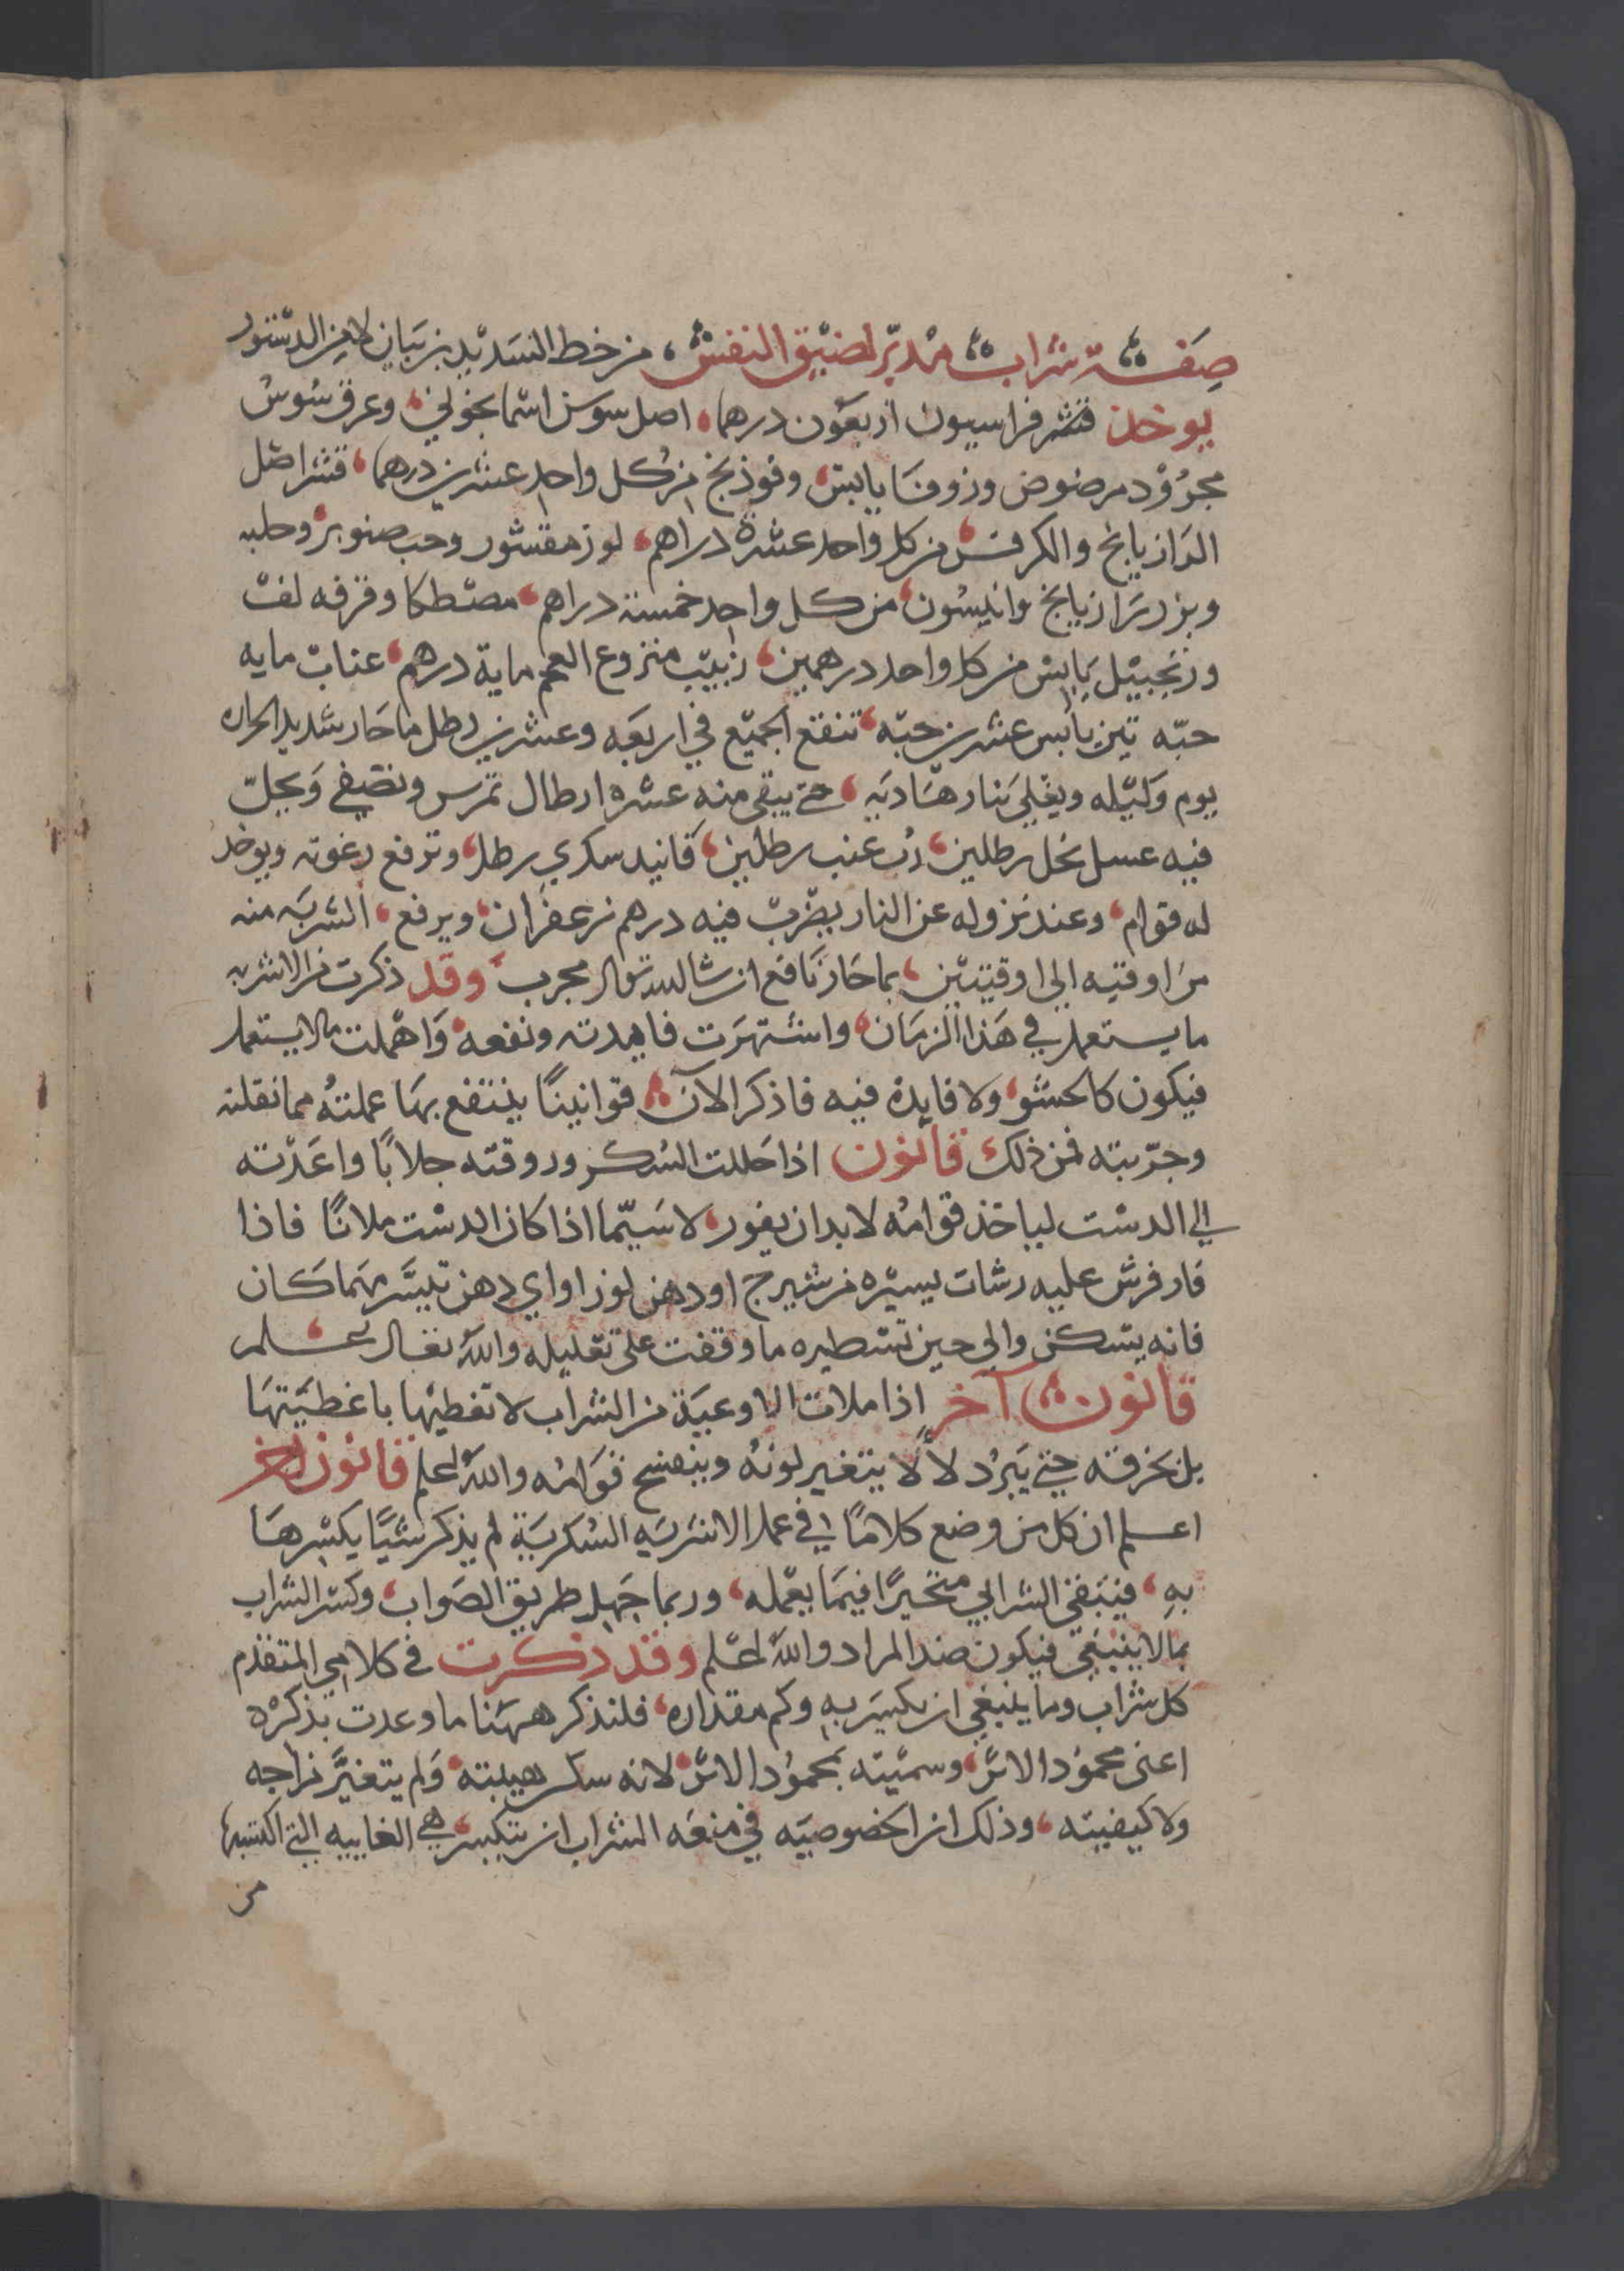 صفة شراب مدبر لضيق النفس، من خط السديد بن بيان لا من الدستور
يوخذ قشر فراسيون اربعون درهما، اصل سوسن اسمانجوني، وعرق سوس
مجرود مرضوض وزوفا يابس، وفوذنج من كل واحد عشرين درهما، قشر اصل
الرازيانج والكرفس من كل واحد عشرة دراهم، لوز مقشور وحب صنوبر وحلبه
وبزر رازيانج وانيسون، من كل واحد خمسة دراهم، مصطكا وقرفه لف
وزنجبيل يابس من كل واحد درهمين، زبيب منزوع العجم ماية درهم، عناب مايه
حبّه تين يابس عشرين حبّه، تنقع الجميع في اربعه وعشرين رطل ما حار شديد الحراره
يوم وليله ويغلي بنار هاديه، حتى يبقى منه عشره ارطال تمرس وتصفي ويحلّ
فيه عسل نحل رطلين، رُب عنب رطلين، فانيد سكري رطل، وترفع رغوته ويوخذ
له قوام، وعند نزوله عن النار يضرب فيه درهم زعفران، ويرفع، الشربه منه
من اوقيه الى اوقيتين، بما حار نافع ان شا الله تعالى مجرب، وقد ذكرت من الاشربه
ما يستعمل في هذا الزمان، واشتهرت فايدته ونفعه، واهملت ما لا يستعمل
فيكون كالحشو، ولا فايدة فيه فاذكر الآن، قوانينًا ينتفع بها عملتهُ مما نقلته
وجرّبته فمن ذلك، قانون اذا حللت السكر وروقته جلابًا واعدته
الى الدست لياخذ قوامهُ لا بد ان يفور، لا سيّما اذا كان الدست ملانًا فاذا
فار فرش عليه رشات يسيره من شيرج او دهن لوز او اي دهن تيسّر مهما كان
فانه يسكن والى حين تسطيره ما وقفت على تعليله والله تعالى اعلم،
قانون، آخر اذا ملات الاوعية من الشراب لا تغطيها باغطيتها
بل بخرقه حتى يبرد لألّا يتغير لونهُ وينفسخ قوامُه والله اعلم قانون اخر
اعلم ان كل من وضع كلامًا في عمل الاشربه السُكرية لم يذكر شيًا يكسرها
بهِ، فيبقى الشرابي متحيرًا فيما يعمله، وربما جهل طريق الصواب، وكسر الشراب
بما لا ينبغي فيكون ضد المراد والله اعلم وقد ذكرت في كلامي المتقدم
كل شراب وما ينبغي ان يكسر به وكم مقداره، فلنذكر ههنا ما وعدت بذكره
اعنى محمود الاثر، وسميّته بمحمود الاثر، لانه سكر هيبته، ولم يتغيّر مزاجه
ولا كيفيته، وذلك ان الخصوصيه في منعه الشراب ان يتكسر، هي الغاييه التي اكتسبها
من